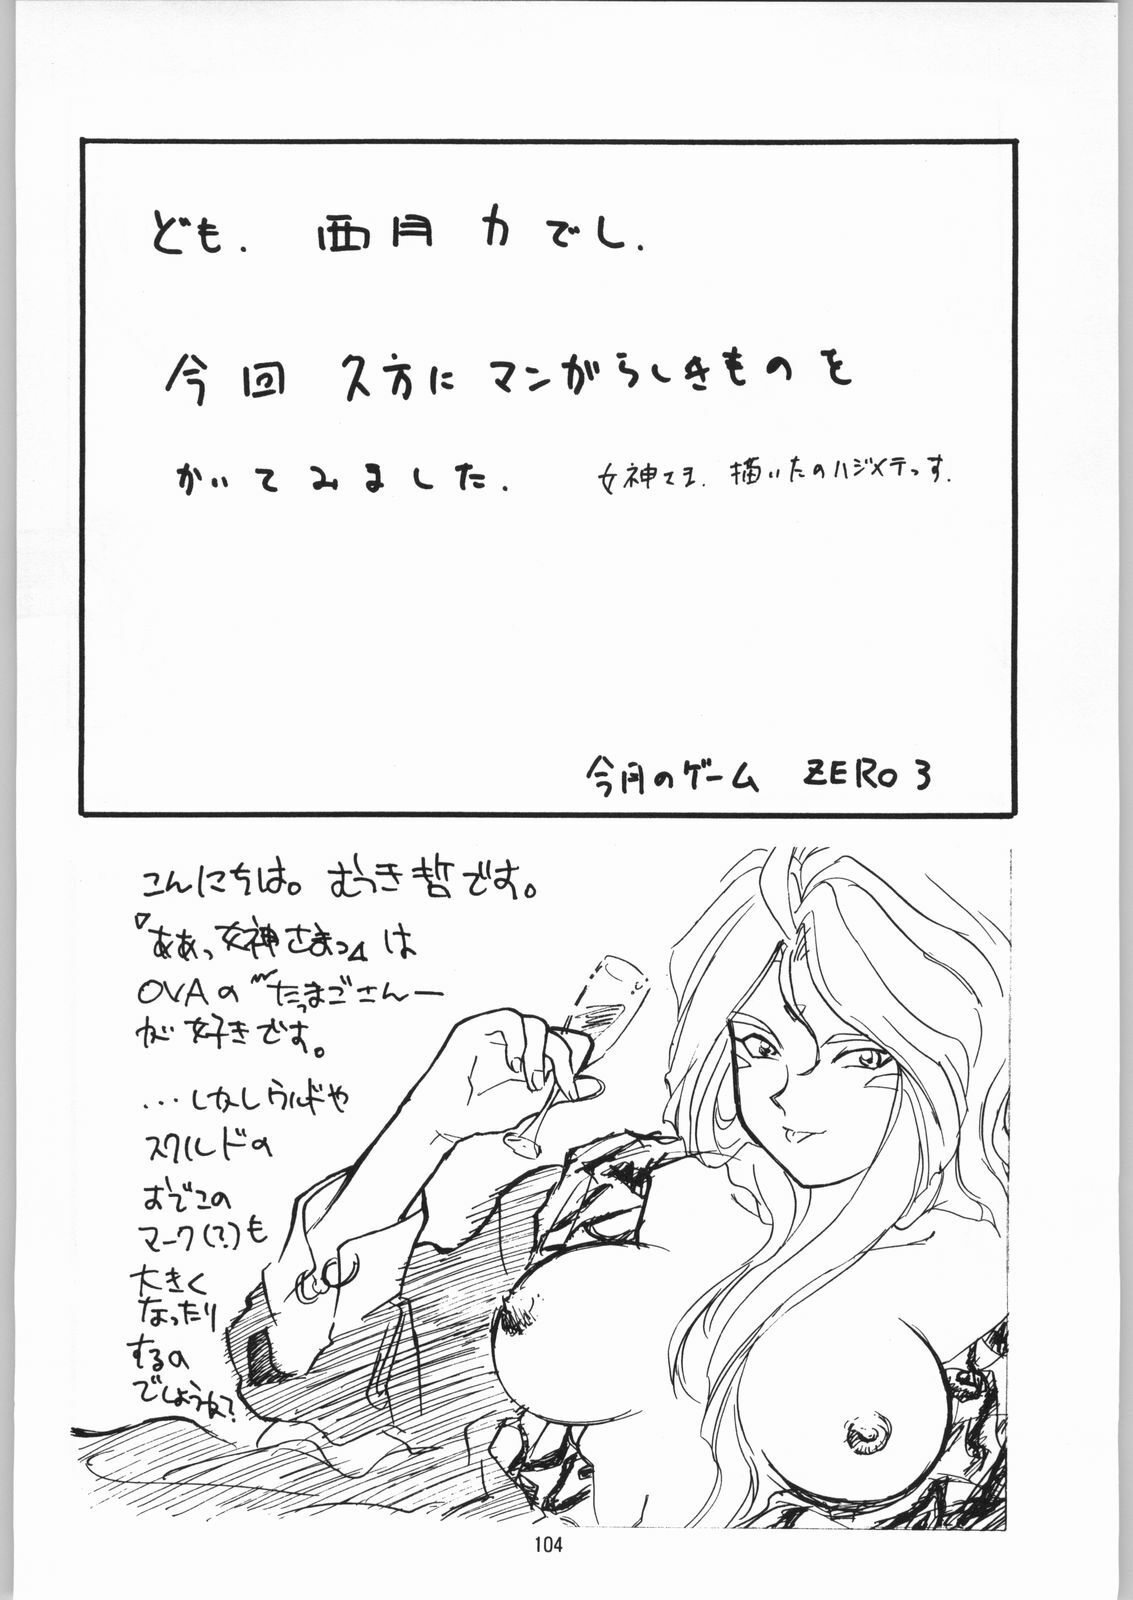 ども. 西月 力でし.
今回 久方に マンガらしきものを
かいてみました. 女神さま. 描いたのハジメテっす.
今月のゲーム ZERO 3
こんにちは。むつき哲です。
『ああっ女神さまっ』は
OVAの〝たまごさんー
が好きです。
...しかしウルドや
スクルドの
おでこの
マーク(?)も
大きく
なったり
するの
でしょうね?
104